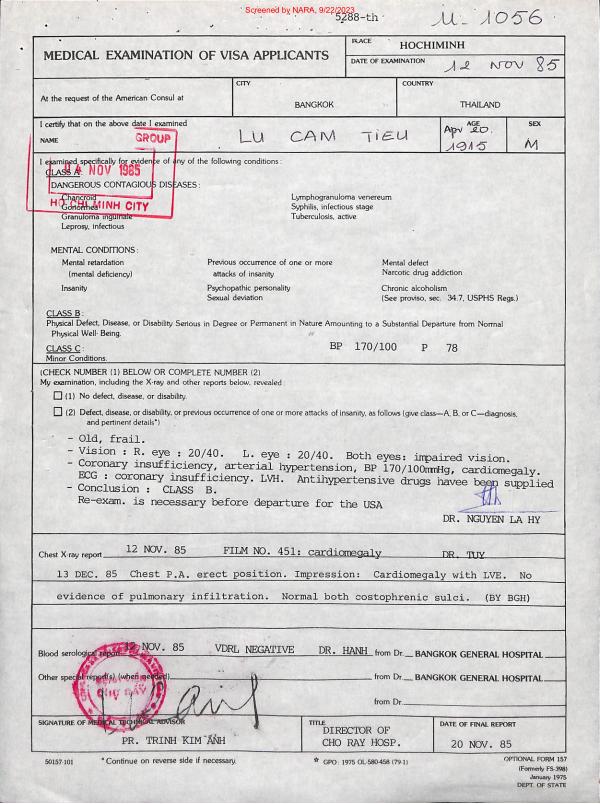 Screened by NARA, 9/22/2023
5288-th
M-1056
MEDICAL EXAMINATION OF VISA APPLICANTS
PLACE
HOCHIMINH
DATE OF EXAMINATION
12 NOV 85
At the request of the American Consul at
CITY
BANGKOK
COUNTRY
THAILAND
I certify that on the above date I examined
NAME
LU CAM TIEU
AGE
Apr 20.
1915
SEX
M
GROUP
NOV 1985
HO CHI MINH CITY
I examined specifically for evidence of any of the following conditions:
CLASS A:
DANGEROUS CONTAGIOUS DISEASES:
Chancroid
Gonorrhea
Granuloma inguinale
Leprosy, infectious
Lymphogranuloma venereum
Syphilis, infectious stage
Tuberculosis, active
MENTAL CONDITIONS:
Mental retardation
(mental deficiency)
Insanity
Previous occurrence of one or more
attacks of insanity
Psychopathic personality
Sexual deviation
Mental defect
Narcotic drug addiction
Chronic alcoholism
(See proviso, sec. 34.7, USPHS Regs.)
CLASS B:
Physical Defect, Disease, or Disability Serious in Degree or Permanent in Nature Amounting to a Substantial Departure from Normal
Physical Well-Being.
CLASS C:
Minor Conditions.
BP 170/100 P 78
(CHECK NUMBER (1) BELOW OR COMPLETE NUMBER (2)
My examination, including the X-ray and other reports below, revealed:
(1) No defect, disease, or disability.
(2) Defect, disease, or disability, or previous occurrence of one or more attacks of insanity, as follows (give class—A, B, or C—diagnosis,
and pertinent details*)
- Old, frail.
- Vision : R. eye : 20/40. L. eye : 20/40. Both eyes: impaired vision.
- Coronary insufficiency, arterial hypertension, BP 170/100mmHg, cardiomegaly.
ECG : coronary insufficiency. LVH. Antihypertensive drugs havee been supplied
- Conclusion : CLASS B.
Re-exam. is necessary before departure for the USA
DR. NGUYEN LA HY
Chest X-ray report 12 NOV. 85 FILM NO. 451: cardiomegaly DR. TUY
13 DEC. 85 Chest P.A. erect position. Impression: Cardiomegaly with LVE. No
evidence of pulmonary infiltration. Normal both costophrenic sulci. (BY BGH)
Blood serological report 12 NOV. 85 VDRL NEGATIVE DR. HANH from Dr. BANGKOK GENERAL HOSPITAL
Other special report(s) (when needed) from Dr. BANGKOK GENERAL HOSPITAL
from Dr.
CHO RAY
SIGNATURE OF MEDICAL TECHNICAL ADVISOR
PR. TRINH KIM ANH
TITLE
DIRECTOR OF
CHO RAY HOSP.
DATE OF FINAL REPORT
20 NOV. 85
50157-101
* Continue on reverse side if necessary.
☆ GPO : 1975 OL-580-458 (79-1)
OPTIONAL FORM 157
(Formerly FS-398)
January 1975
DEPT. OF STATE